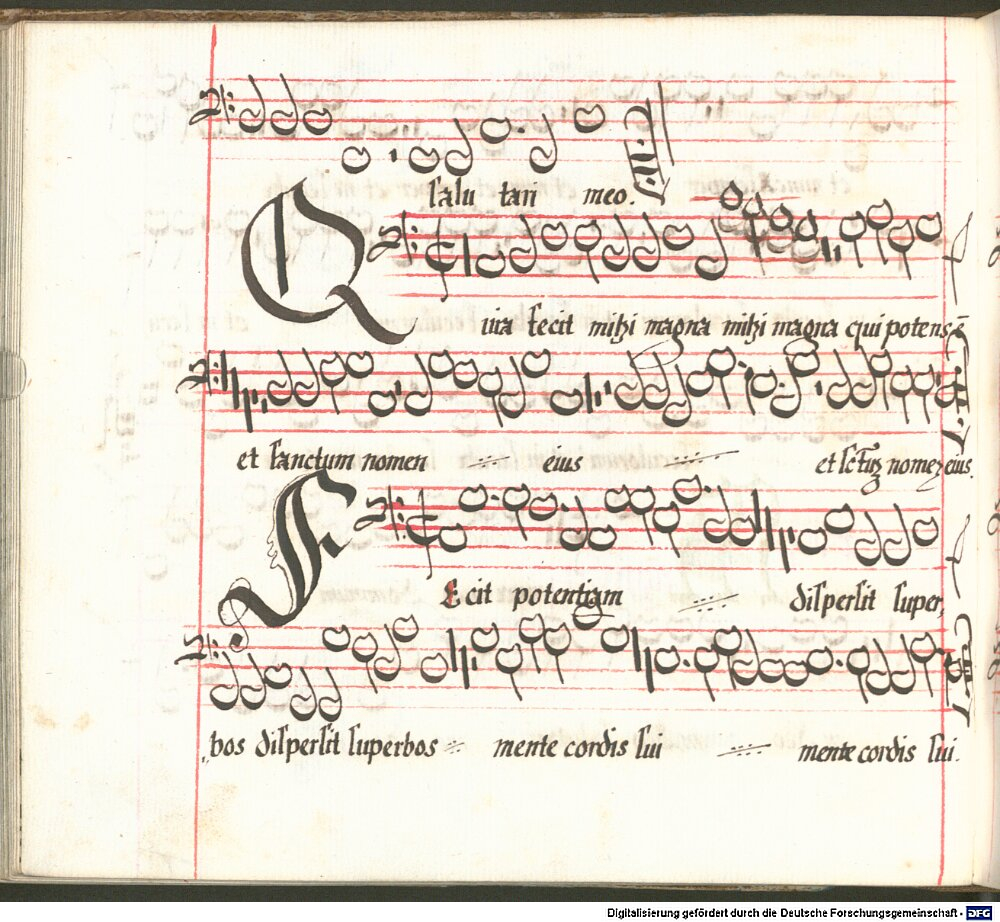 salu tari meo.
Quia fecit mihi magna mihi magna qui potens ē
et sanctum nomen eius et sctũ nomen eius.
Fecit potentiam dispersit super,
bos dispersit superbos mente cordis sui mente cordis sui.
Digitalisierung gefördert durch die Deutsche Forschungsgemeinschaft - DFG